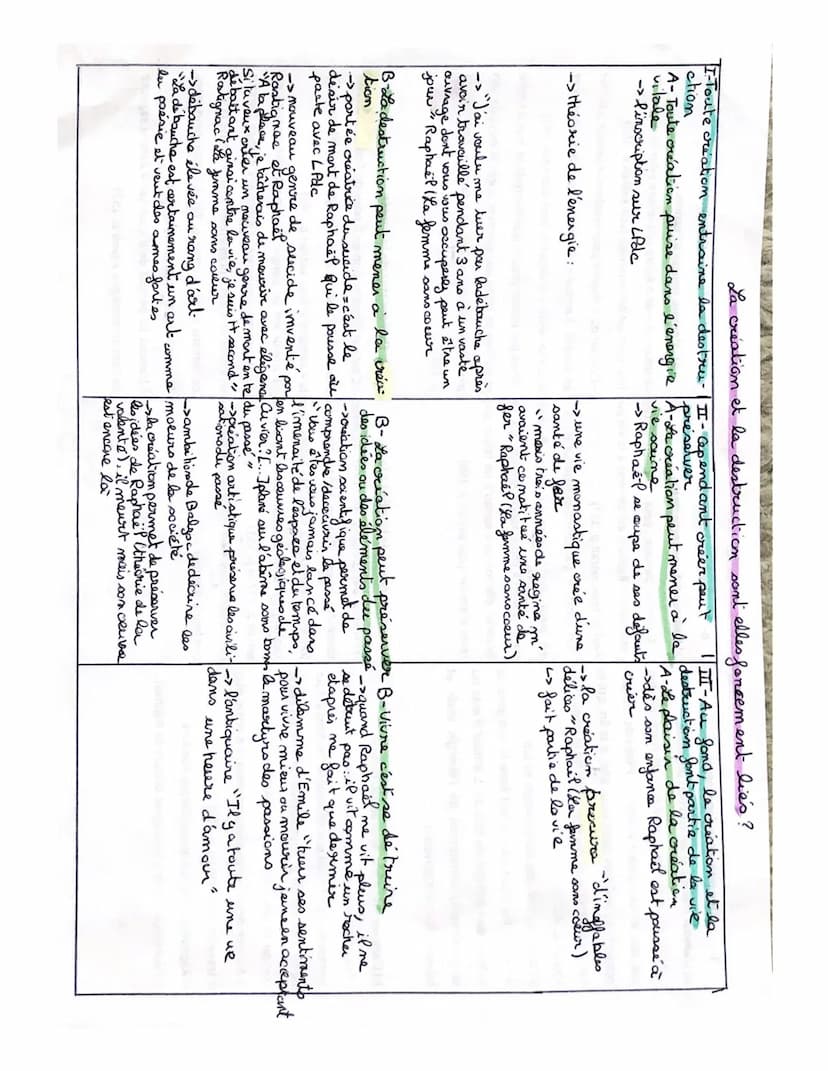 La création et la destruction sont elles forcement liés ?
I-Toute création entraine la destru-
ction
A- Toute création puise dans l'énergie
vitale
→ l'inscription sur LPdc
→ théorie de l'énergie :
→ "J'ai voulu me tuer par la débauche après
avoir travaillé pendant 3 ans à un vaste
ouvrage dont vous vous occuperez peut être un
jour" Raphaël (La femme sans coeur
B-La destruction peut mener à la créa-
tion
→ portée créatrice du suicide = c'est le
désir de mort de Raphaël qui le pousse au
pacte avec LPdc
→ nouveau genre de suicide inventé par
Rastignac et Raphaël
"A ta place, je tâcherais de mourir avec élégance
Si tu veux créer un nouveau genre de mort en te
débattant ainsi contre la vie, je suis tt second"
Rastignac (La femme sans coeur
→ débauche élevée au rang d'art :
"La débauche est certainement un art comme
la poésie et veut des âmes fortes
II- Cependant créer peut
préserver
A-La création peut mener à la
vie saine
→ Raphaël se cupe de ses défauts
→ une vie monastique crée d'une
santé de fer
"mais trois années de regime m'
avaient constitué une santé de
fer" Raphaël (La femme sans coeur)
B- La création peut préserver
des idées ou des éléments du passé
→ création scientifique permet de
comprendre/découvrir le passé
"Vous êtes vous jamais lancé dans
l'immensité de l'espace et du temps,
en lisant les oeuvres géologiques de
Cuvier ? [...] plané sur l'abîme sans bornes
du passé"
→ création artistique préserve les civili-
sations du passé
→ ambition de Balzac de décrire les
moeurs de la société
→ la création permet de préserver
les idées de Raphaël (théorie de la
volonté), il meurt mais son oeuvre
est encore là
III- Au fond, la création et la
destruction font partie de la vie
A- Le plaisir de la création
→ dès son enfance Raphaël est poussé à
créer
→ la création procure "d'ineffables
délices" Raphaël (La femme sans coeur)
↳ fait partie de la vie
B- Vivre c'est se détruire
→ quand Raphaël ne vit plus, il ne
se détruit pas : il vit comme un rocher
et après ne fait que dormir
→ dilemme d'Emile "tuer ses sentiments
pour vivre mieux ou mourir jeune en acceptant
le martyr des passions
→ l'antiquaire "Il y a toute une vie
dans une heure d'amour"